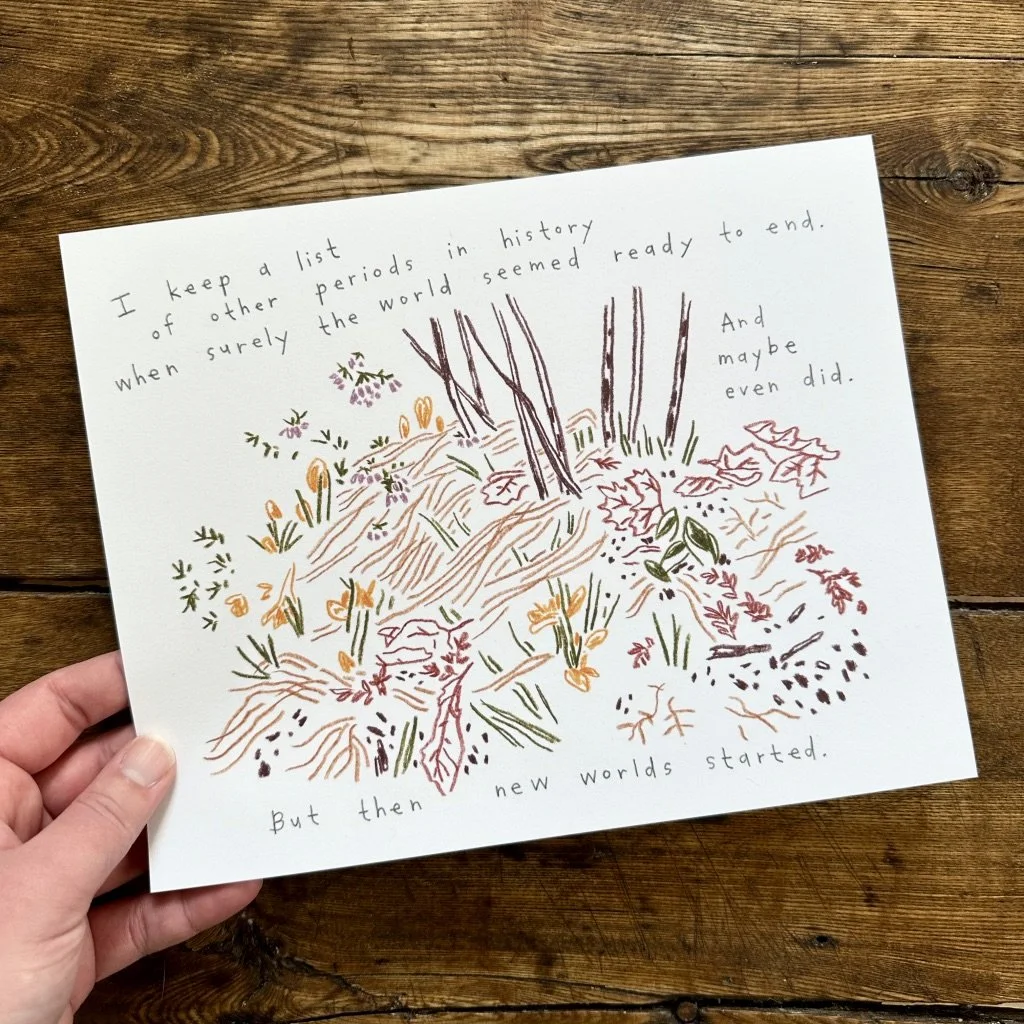 I keep a list
of other periods in history
when surely the world seemed ready to end.
And
maybe
even did.
But then new worlds started.